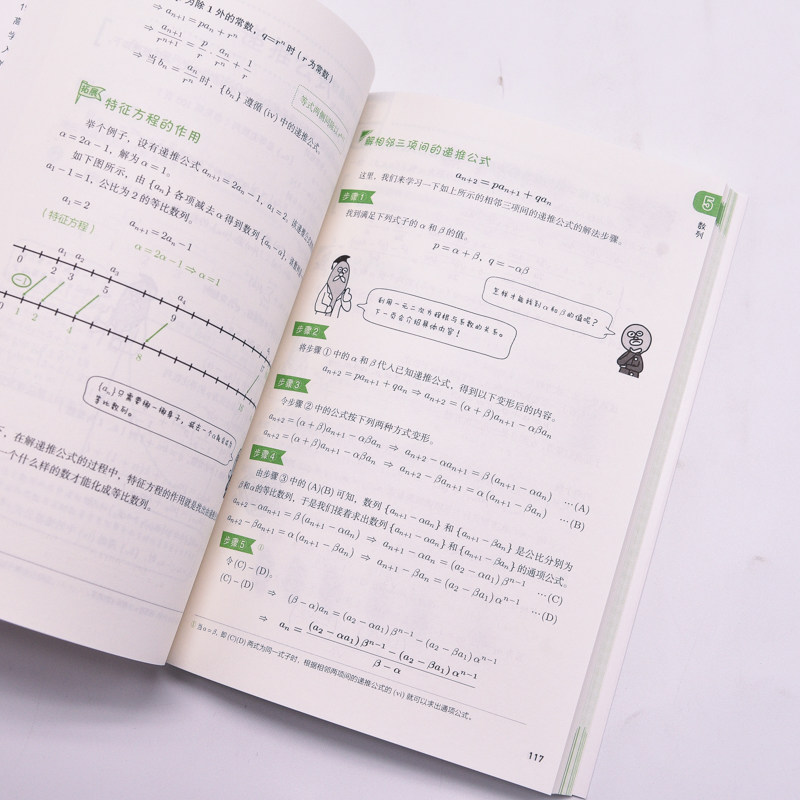 为除 1 外的常数，q=rⁿ 时（r 为常数）
⇒ aₙ₊₁ = paₙ + rⁿ
⇒ aₙ₊₁/rⁿ⁺¹ = p/r · aₙ/rⁿ + 1/r
⇒ 当 bₙ = aₙ/rⁿ 时，{bₙ} 遵循 (iv) 中的递推公式。
等式两侧同除以
拓展
特征方程的作用
举个例子，设有递推公式 aₙ₊₁ = 2aₙ − 1, a₁ = 2，该递推公式
α = 2α − 1，解为 α = 1。
如下图所示，由 {aₙ} 各项减去 α 得到数列 {aₙ − α}，该数列
a₁ − 1 = 1，公比为 2 的等比数列。
a₁ = 2
aₙ₊₁ = 2aₙ − 1
(特征方程)
α = 2α − 1 ⇒ α = 1
a₁ a₂ a₃ a₄
0 2 3 5 9
−1
0 1 2 4 8
{aₙ} 只需要挪一挪身子，减去一个α就成
等比数列。
，在解递推公式的过程中，特征方程的作用就是找出
一个什么样的数才能化成等比数列。
解相邻三项间的递推公式
aₙ₊₂ = paₙ₊₁ + qaₙ
这里，我们来学习一下如上所示的相邻三项间的递推公式的解法步骤。
步骤 1
找到满足下列式子的 α 和 β 的值。
p = α + β, q = −αβ
怎样才能找到 α 和 β 的值呢？
利用一元二次方程根与系数的关系。
下一页会介绍具体内容！
步骤 2
将步骤 ① 中的 α 和 β 代入已知递推公式，得到以下变形后的内容。
aₙ₊₂ = paₙ₊₁ + qaₙ ⇒ aₙ₊₂ = (α + β)aₙ₊₁ − αβaₙ
步骤 3
令步骤 ② 中的公式按下列两种方式变形。
aₙ₊₂ = (α + β)aₙ₊₁ − αβaₙ ⇒ aₙ₊₂ − αaₙ₊₁ = β(aₙ₊₁ − αaₙ) …(A)
aₙ₊₂ = (α + β)aₙ₊₁ − αβaₙ ⇒ aₙ₊₂ − βaₙ₊₁ = α(aₙ₊₁ − βaₙ) …(B)
步骤 4
由步骤 ③ 中的 (A)(B) 可知，数列 {aₙ₊₁ − αaₙ} 和 {aₙ₊₁ − βaₙ} 是公比分别为
β 和 α 的等比数列，于是我们接着求出数列 {aₙ₊₁ − αaₙ} 和 {aₙ₊₁ − βaₙ} 的通项公式。
aₙ₊₂ − αaₙ₊₁ = β(aₙ₊₁ − αaₙ) ⇒ aₙ₊₁ − αaₙ = (a₂ − αa₁)βⁿ⁻¹ …(C)
aₙ₊₂ − βaₙ₊₁ = α(aₙ₊₁ − βaₙ) ⇒ aₙ₊₁ − βaₙ = (a₂ − βa₁)αⁿ⁻¹ …(D)
步骤 5 ①
令 (C) − (D)。
(C) − (D)
⇒ (β − α)aₙ = (a₂ − αa₁)βⁿ⁻¹ − (a₂ − βa₁)αⁿ⁻¹
⇒ aₙ = ((a₂ − αa₁)βⁿ⁻¹ − (a₂ − βa₁)αⁿ⁻¹)/(β − α)
① 当 α = β，即 (C)(D) 两式为同一式子时，根据相邻两项间的递推公式的 (vi) 就可以求出通项公式。
117
5
数列